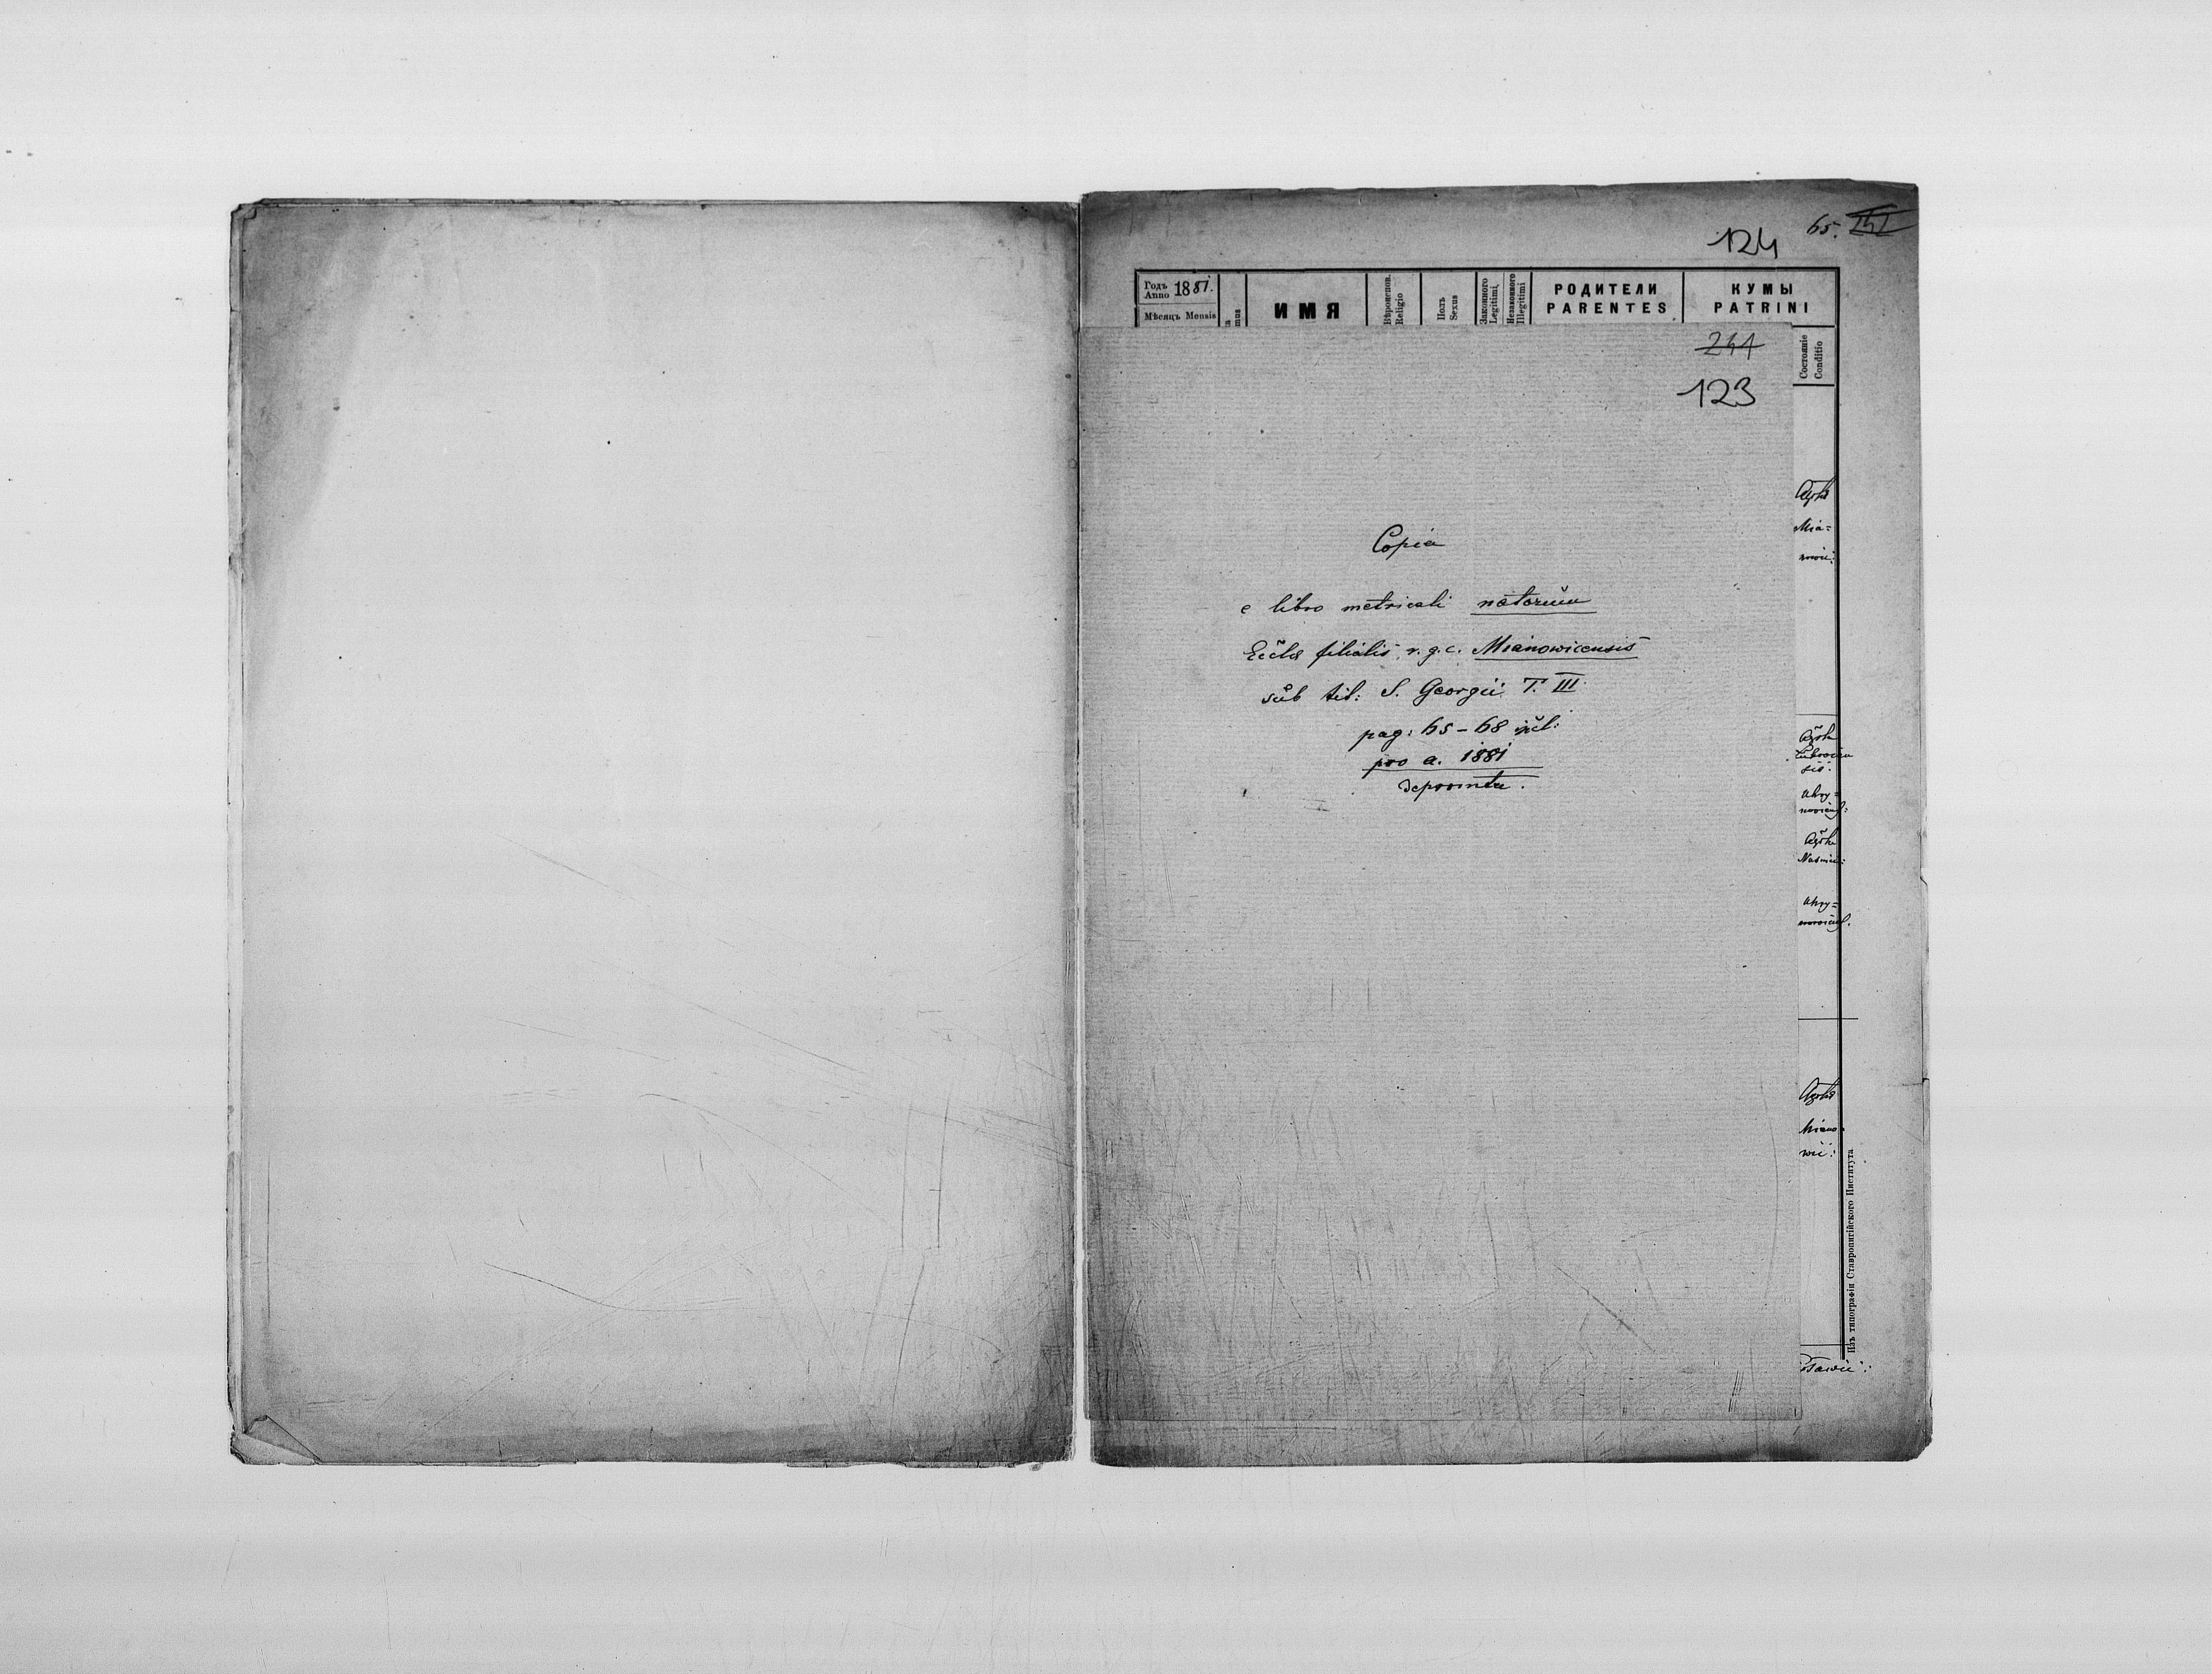 65.
124
Годъ Anno 1881.
Мѣсяцъ Mensis
ИМЯ
Вѣроиспов. Religio
Полъ Sexus
Законного Legitimi
Незаконного Illegitimi
РОДИТЕЛИ
PARENTES
КУМЫ
PATRINI
Состояніе
Conditio
241
123
Copia
e libro metricali natorum
Eccla filialis r. g. c. Mianowicensis
sub tit: S. Georgii T. III.
pag: 65-68 incl:
pro a. 1881
deprompta.
Mia=
Ahry=
Ahry=
Miano
wic:
Изъ типографіи Ставропигійского Института